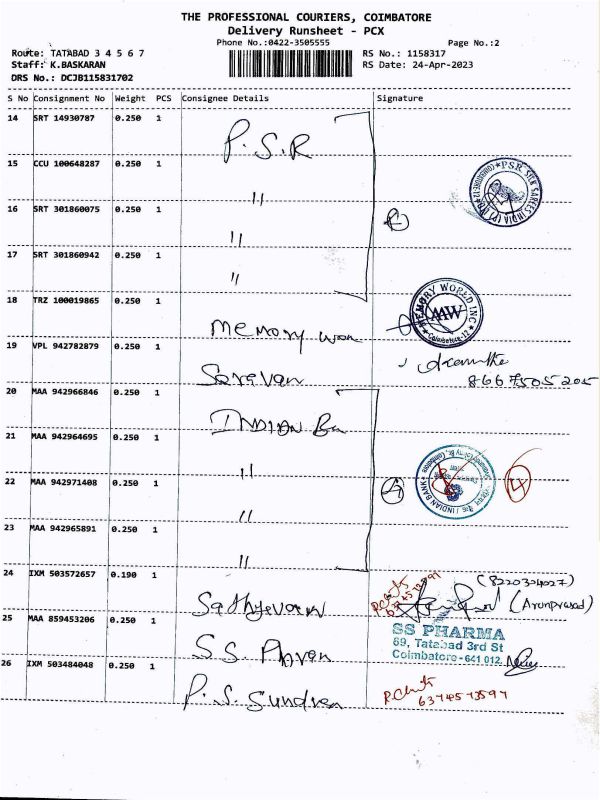 THE PROFESSIONAL COURIERS, COIMBATORE
Delivery Runsheet - PCX
Phone No.:0422-3505555
Page No.:2
Route: TATABAD 3 4 5 6 7
RS No.: 1158317
Staff: K.BASKARAN
RS Date: 24-Apr-2023
DRS No.: DCJB115831702
S No Consignment No Weight PCS Consignee Details Signature
14 SRT 14930787 0.250 1
P.S.R
15 CCU 100648287 0.250 1
"
PSR SILK SAREES INDIA (P) LTD
16 SRT 301860075 0.250 1
"
17 SRT 301860942 0.250 1
"
18 TRZ 100019865 0.250 1
Memory wor
MEMORY WORLD INC
Coimbatore-12
19 VPL 942782879 0.250 1
Saravan
8667505205
20 MAA 942966846 0.250 1
INDIAN Ba
21 MAA 942964695 0.250 1
"
INDIAN BANK
22 MAA 942971408 0.250 1
"
4
23 MAA 942965891 0.250 1
"
24 IXM 503572657 0.190 1
(8220304027)
(Arunprasad)
25 MAA 859453206 0.250 1
S.S. Phram
SS PHARMA
69, Tatabad 3rd St
Coimbatore - 641 012.
26 IXM 503484048 0.250 1
P.S. Sundra